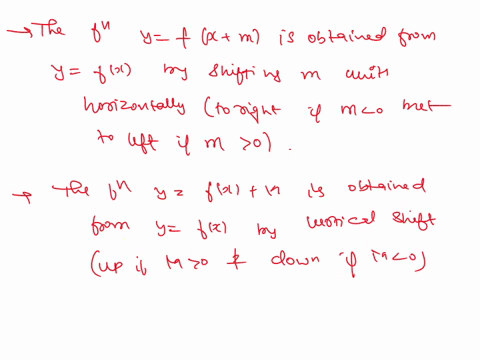 → The fⁿ y = f(x+m) is obtained from
y = f(x) by shifting m units
horizontally (to right if m<0
to left if m >0).
→ The fⁿ y = f(x) + k is obtained
from y = f(x) by vertical shift
(up if k>0 & down if k<0)